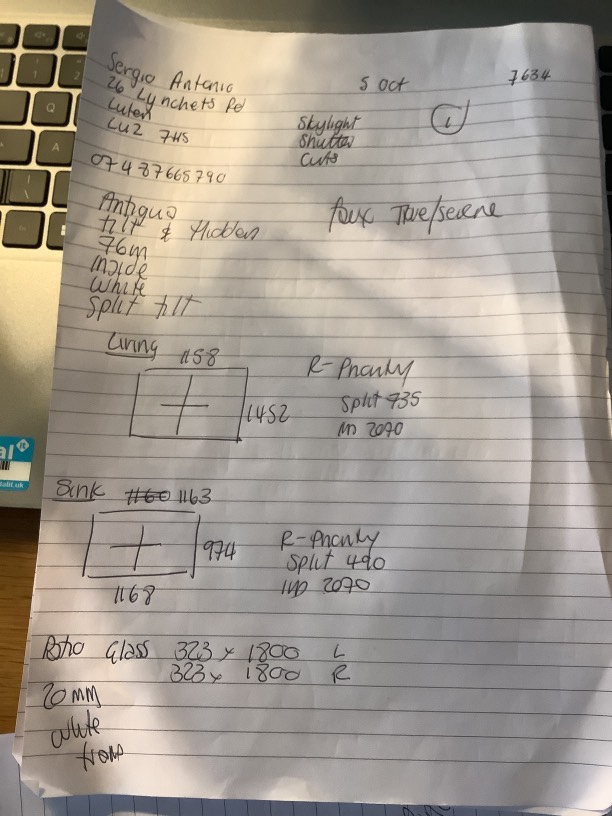 Sergio Antonio
26 Lynchets Rd
Luton
LU2 7HS
07487665790
5 Oct
7634
Skylight
Shutter
Cuts
1
Antigua
tilt & Hidden
76m
inside
white
split tilt
faux True/serene
Living 1158
1452
R-Phanky
Split 735
MD 2070
Sink 1160 1163
974
1168
R-Phanky
Split 490
MD 2070
Patio Glass 323 x 1800 L
323 x 1800 R
20 mm
white
trans
Q
A